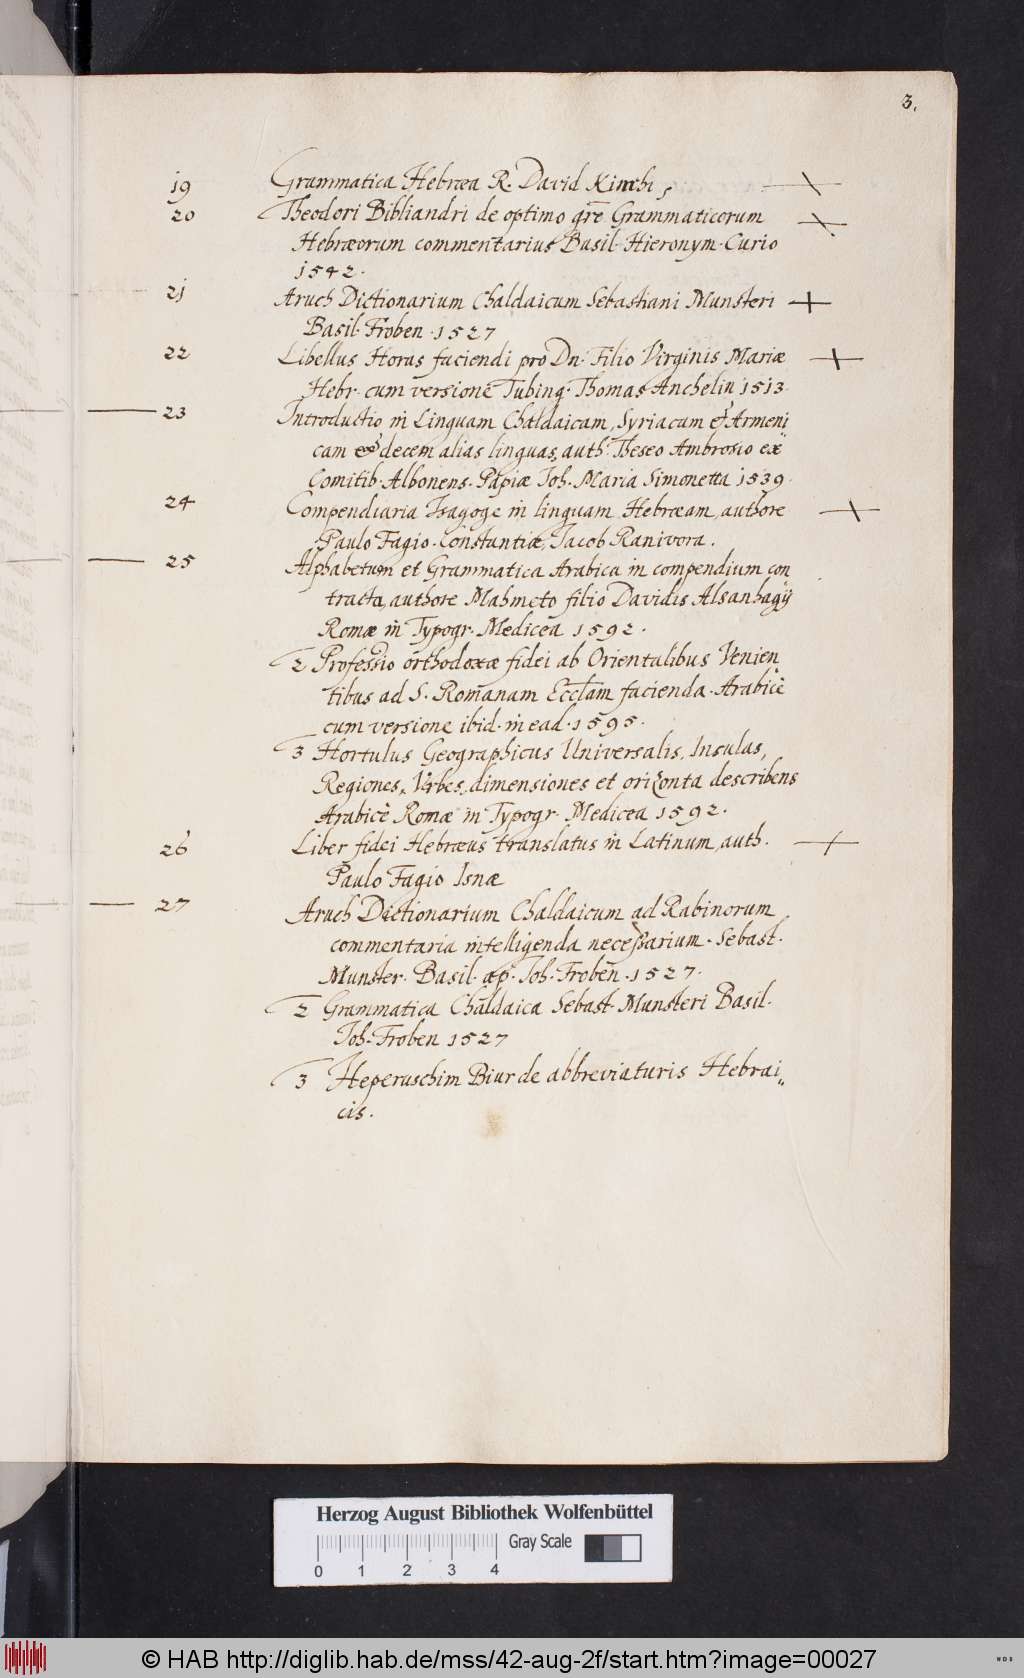 3.
19 Grammatica Hebræa R. David Kimchi,
20 Theodori Bibliandri de optimo gr̄e Grammaticorum
Hebræorum commentarius Basil. Hieronym. Curio
1542.
21 Aruch Dictionarium Chaldaicum Sebastiani Munsteri
Basil. Froben. 1527
22 Libellus Horas faciendi pro Dn. Filio Virginis Mariæ
Hebr. cum versione Tubing. Thomas Anchelin 1513.
23 Introductio in Linguam Chaldaicam, Syriacam & Armeni
cam & decem alias linguas, auth. Theseo Ambrosio ex
Comitib. Albonens. Papiæ Joh. Maria Simonetta 1539.
24 Compendiaria Isagoge in linguam Hebræam, authore
Paulo Fagio. Constantiæ, Jacob Ranivora.
25 Alphabetum et Grammatica Arabica in compendium con
tracta, authore Mahmeto filio Davidis Alsanhagij
Romæ in Typogr. Medicea 1592.
2 Professio orthodoxæ fidei ab Orientalibus Venien
tibus ad S. Romanam Eccl̄am facienda. Arabicè
cum versione ibid. in ead. 1595.
3 Hortulus Geographicus Universalis, Insulas,
Regiones, Vrbes, dimensiones et orizonta describens
Arabicè Romæ in Typogr. Medicea 1592.
26 Liber fidei Hebræus translatus in Latinum, auth.
Paulo Fagio Isnæ
27 Aruch Dictionarium Chaldaicum ad Rabinorum
commentaria intelligenda necessarium. Sebast.
Munster. Basil. ap. Joh. Froben. 1527.
2 Grammatica Chaldaica Sebast. Munsteri Basil.
Joh. Froben 1527
3 Heperuschim Biur de abbreviaturis Hebrai„
cis.
Herzog August Bibliothek Wolfenbüttel
Gray Scale
0 1 2 3 4
© HAB http://diglib.hab.de/mss/42-aug-2f/start.htm?image=00027
WDB